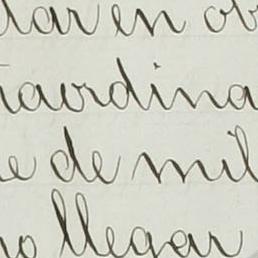 dar en ob
taordina
se de mil
no llegar